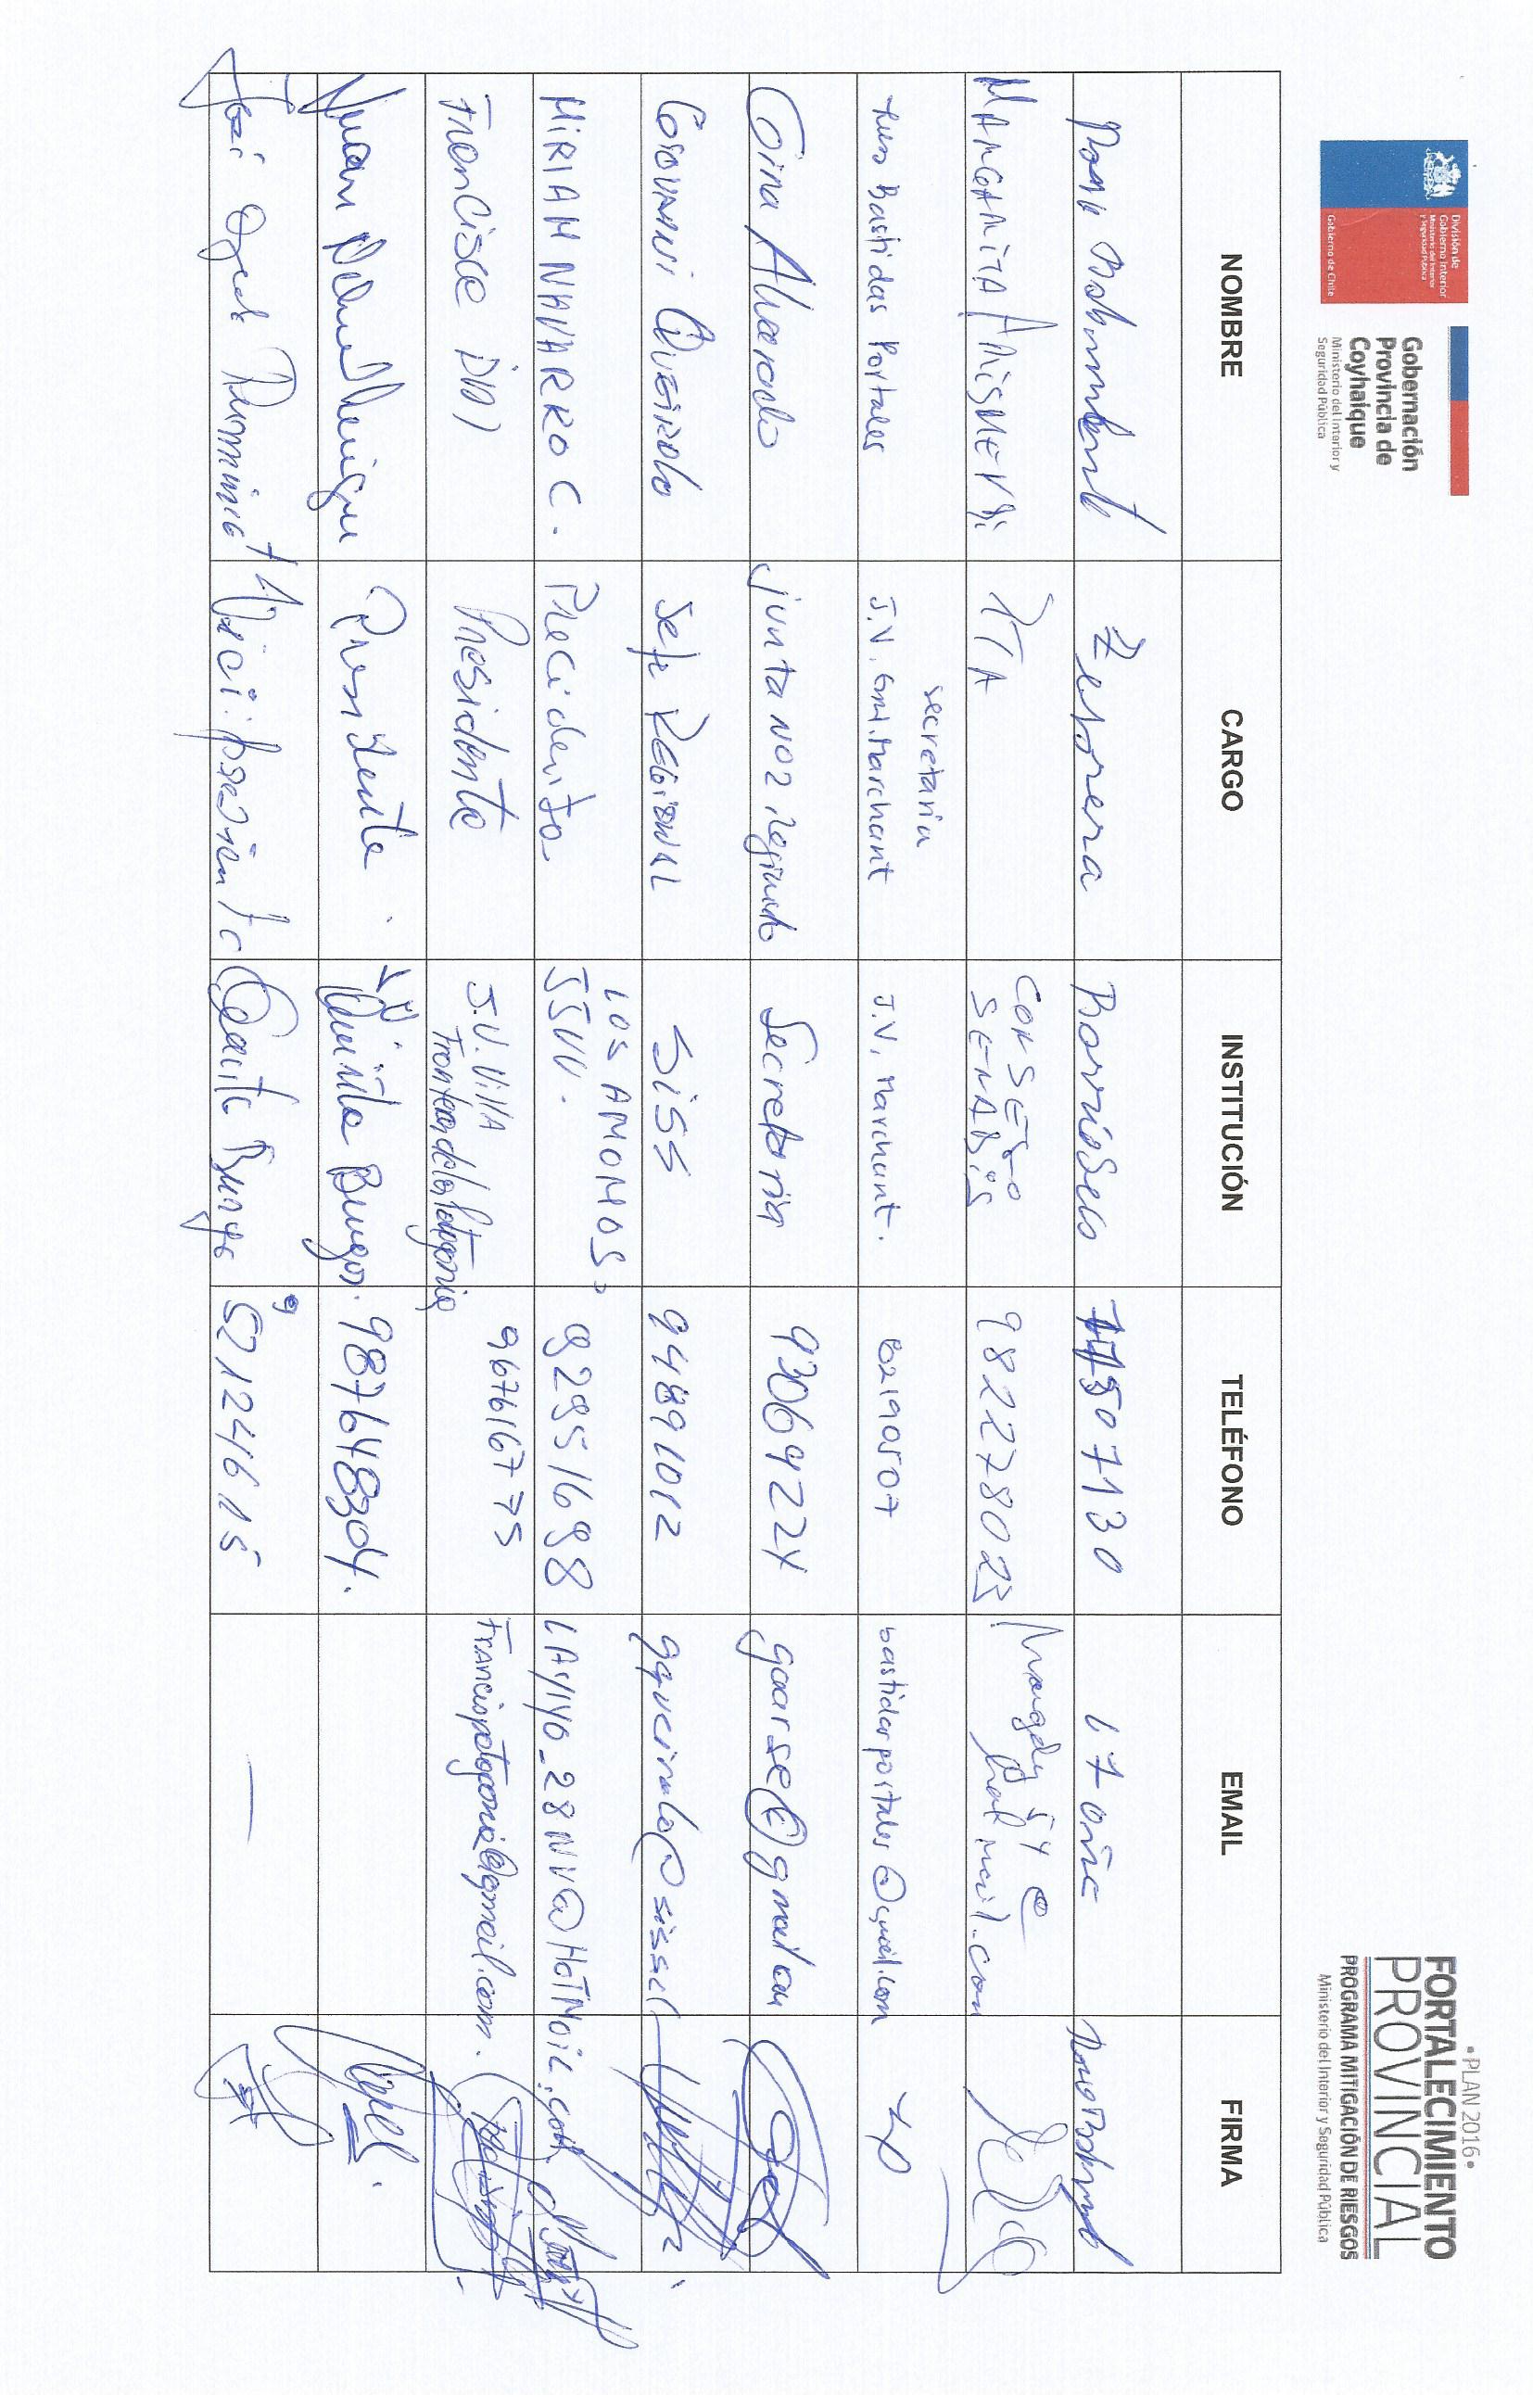 División de
Gobierno Interior
Ministerio del Interior
y Seguridad Pública
Gobierno de Chile
Gobernación
Provincia de
Coyhaique
Ministerio del Interior y
Seguridad Pública
•PLAN 2016•
FORTALECIMIENTO
PROVINCIAL
PROGRAMA MITIGACIÓN DE RIESGOS
Ministerio del Interior y Seguridad Pública
NOMBRE CARGO INSTITUCIÓN TELÉFONO EMAIL FIRMA
507130 67
MARGARITA ARISMENDI CONSEJO
SENADIS 982278023 54@
hotmail.com
Bastidas Portales secretaria
J.V. Marchant J.V. Marchant. 82190507 bastidasportales@gmail.com
Gina Alvarado junta Nº2 Secretaria 93069224 gaarse@gmail.com
GIOVANNI QUEIROLO Jefe REGIONAL SISS 94891012 gqueirolo@siss.cl
MIRIAM NAVARRO C. Precidenta LOS AMOMOS
JJVV. 92951698 LAYIYO_28NV@HOTMOIL.COM
Francisco Presidente J.V. Villa
Frontera de la Patagonia 967616775 Franciopatagonia@gmail.com.
Juan Presidente J.V.
Quinta Burgos. 987648304.
José Quinta Burgo 9
52124615 —